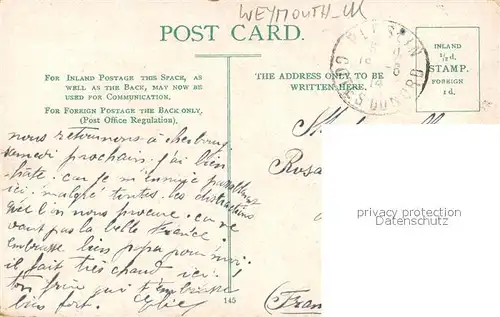 WEYMOUTH_UK
POST CARD.
FOR INLAND POSTAGE THIS SPACE, AS WELL AS THE BACK, MAY NOW BE USED FOR COMMUNICATION.
FOR FOREIGN POSTAGE THE BACK ONLY,
(Post Office Regulation),
THE ADDRESS ONLY TO BE
WRITTEN HERE.
COTES DU NORD
INLAND
½d.
STAMP.
FOREIGN
1d.
nous retournons à cherbourg
samedi prochain. j'ai bien
hâte. car je m'ennuie
ici. malgré toutes les distractions
que l'on nous procure. ca ne
vaut pas la belle France!
embrasse bien papa pour moi!
il fait très chaud ici!
ton frère qui t'embrasse
bien fort.
145
Rosa
(Fran
privacy protection